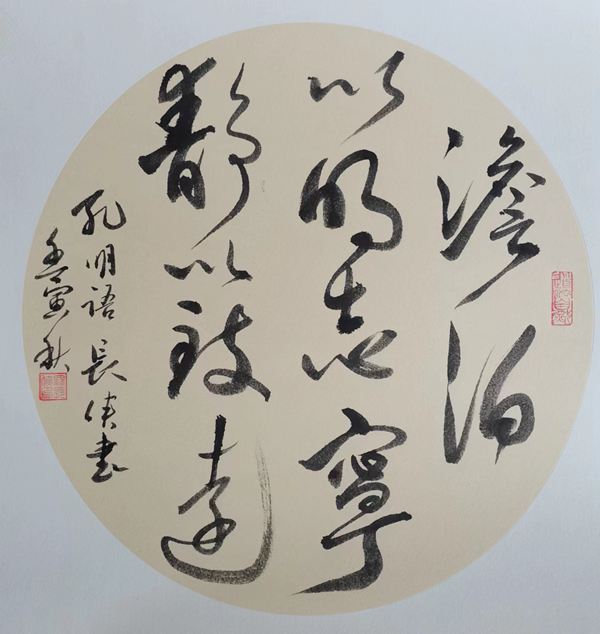 澹泊
以明志寧
靜以致遠
孔明語長俠書
壬寅秋